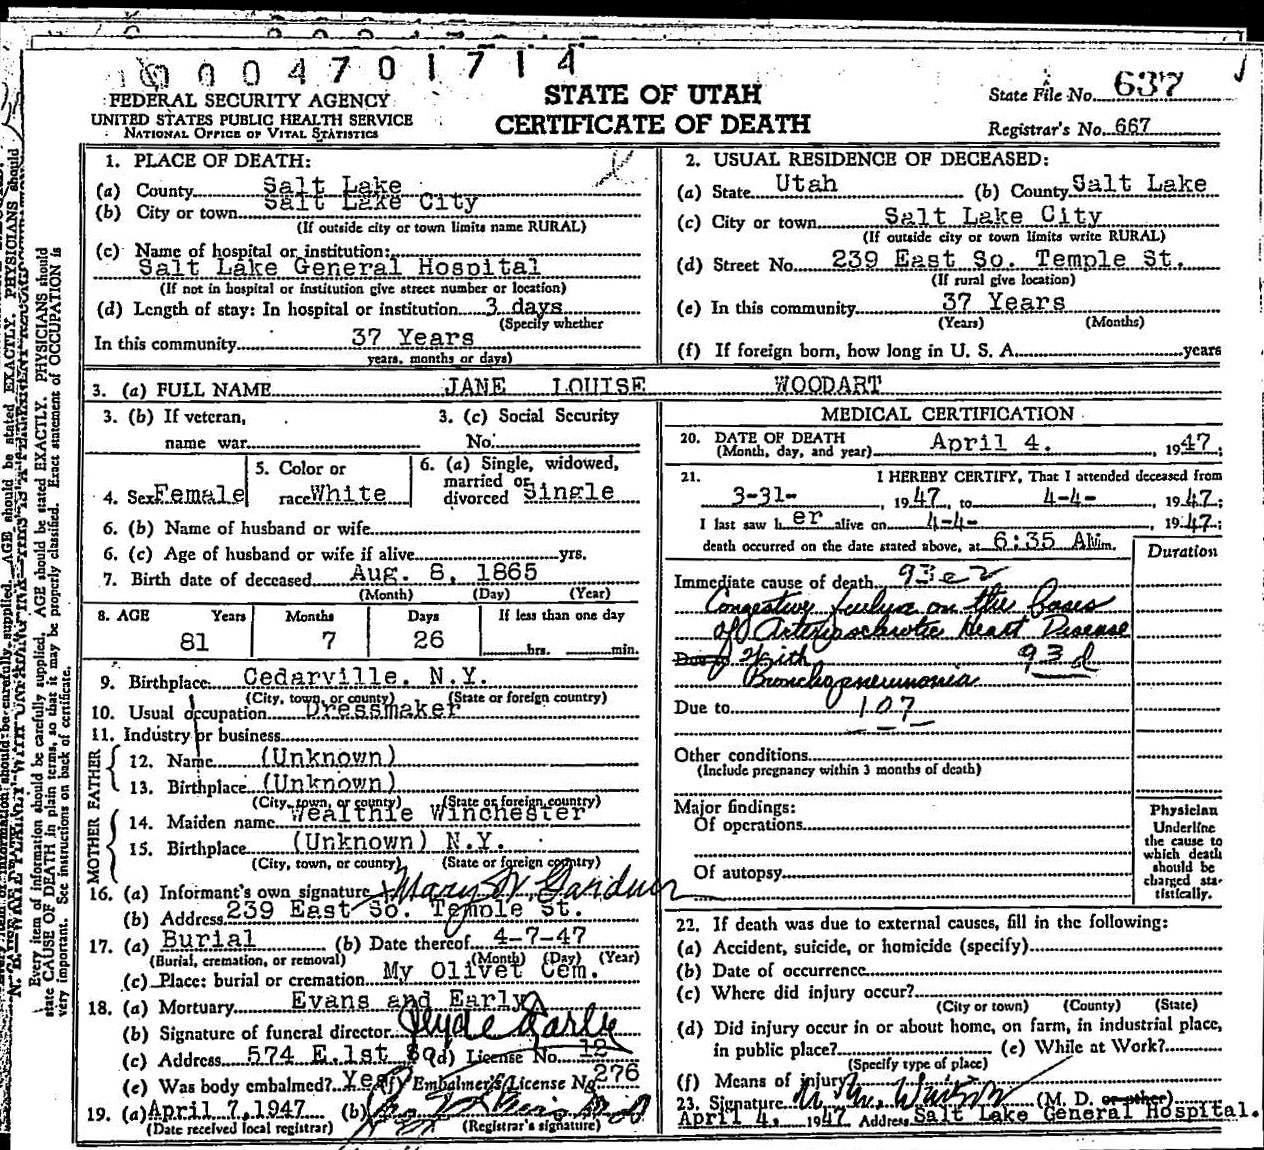 0004701714
FEDERAL SECURITY AGENCY
UNITED STATES PUBLIC HEALTH SERVICE
NATIONAL OFFICE OF VITAL STATISTICS
STATE OF UTAH
CERTIFICATE OF DEATH
State File No. 637
Registrar's No. 667
1. PLACE OF DEATH:
(a) County Salt Lake
(b) City or town Salt Lake City
(If outside city or town limits name RURAL)
(c) Name of hospital or institution:
Salt Lake General Hospital
(If not in hospital or institution give street number or location)
(d) Length of stay: In hospital or institution 3 days
(Specify whether
In this community 37 Years
years, months or days)
2. USUAL RESIDENCE OF DECEASED:
(a) State Utah (b) County Salt Lake
(c) City or town Salt Lake City
(If outside city or town limits write RURAL)
(d) Street No. 239 East So. Temple St.
(If rural give location)
(e) In this community 37 Years
(Years) (Months)
(f) If foreign born, how long in U. S. A. years
3. (a) FULL NAME JANE LOUISE WOODART
3. (b) If veteran,
name war
3. (c) Social Security
No.
4. Sex Female
5. Color or
race White
6. (a) Single, widowed,
married or
divorced Single
6. (b) Name of husband or wife
6. (c) Age of husband or wife if alive yrs.
7. Birth date of deceased Aug. 8, 1865
(Month) (Day) (Year)
8. AGE Years Months Days If less than one day
81 7 26 hrs. min.
9. Birthplace Cedarville, N.Y.
(City, town, or county) (State or foreign country)
10. Usual occupation Dressmaker
11. Industry or business
FATHER
12. Name (Unknown)
13. Birthplace (Unknown)
(City, town, or county) (State or foreign country)
MOTHER
14. Maiden name Wealthie Winchester
15. Birthplace (Unknown) N.Y.
(City, town, or county) (State or foreign country)
16. (a) Informant's own signature Mary W. Gardner
(b) Address 239 East So. Temple St.
17. (a) Burial (b) Date thereof 4-7-47
(Burial, cremation, or removal) (Month) (Day) (Year)
(c) Place: burial or cremation My Olivet Cem.
18. (a) Mortuary Evans and Early
(b) Signature of funeral director Clyde Early
(c) Address 574 E. 1st So (d) License No. 12
(e) Was body embalmed? Yes (f) Embalmer's License No. 276
19. (a) April 7, 1947 (b)
(Date received local registrar) (Registrar's signature)
MEDICAL CERTIFICATION
20. DATE OF DEATH
(Month, day, and year) April 4. , 1947;
21. I HEREBY CERTIFY, That I attended deceased from
3-31- , 1947, to 4-4- , 1947;
I last saw her alive on 4-4- , 1947;
death occurred on the date stated above, at 6:35 AM m.
Duration
Immediate cause of death 93e2
Congestive failure on the bases
of Arteriosclerotic Heart Disease
Due to With 93d
Bronchopneumonia
Due to 107
Other conditions
(Include pregnancy within 3 months of death)
Major findings:
Of operations
Of autopsy
Physician
Underline
the cause to
which death
should be
charged sta-
tistically.
22. If death was due to external causes, fill in the following:
(a) Accident, suicide, or homicide (specify)
(b) Date of occurrence
(c) Where did injury occur?
(City or town) (County) (State)
(d) Did injury occur in or about home, on farm, in industrial place,
in public place? (e) While at Work?
(Specify type of place)
(f) Means of injury
23. Signature (M. D. or other)
April 4, 1947 Address Salt Lake General Hospital.
Every item of information should be carefully supplied. AGE should be stated EXACTLY. PHYSICIANS should
state CAUSE OF DEATH in plain terms, so that it may be properly classified. Exact statement of OCCUPATION is
very important. See instructions on back of certificate.